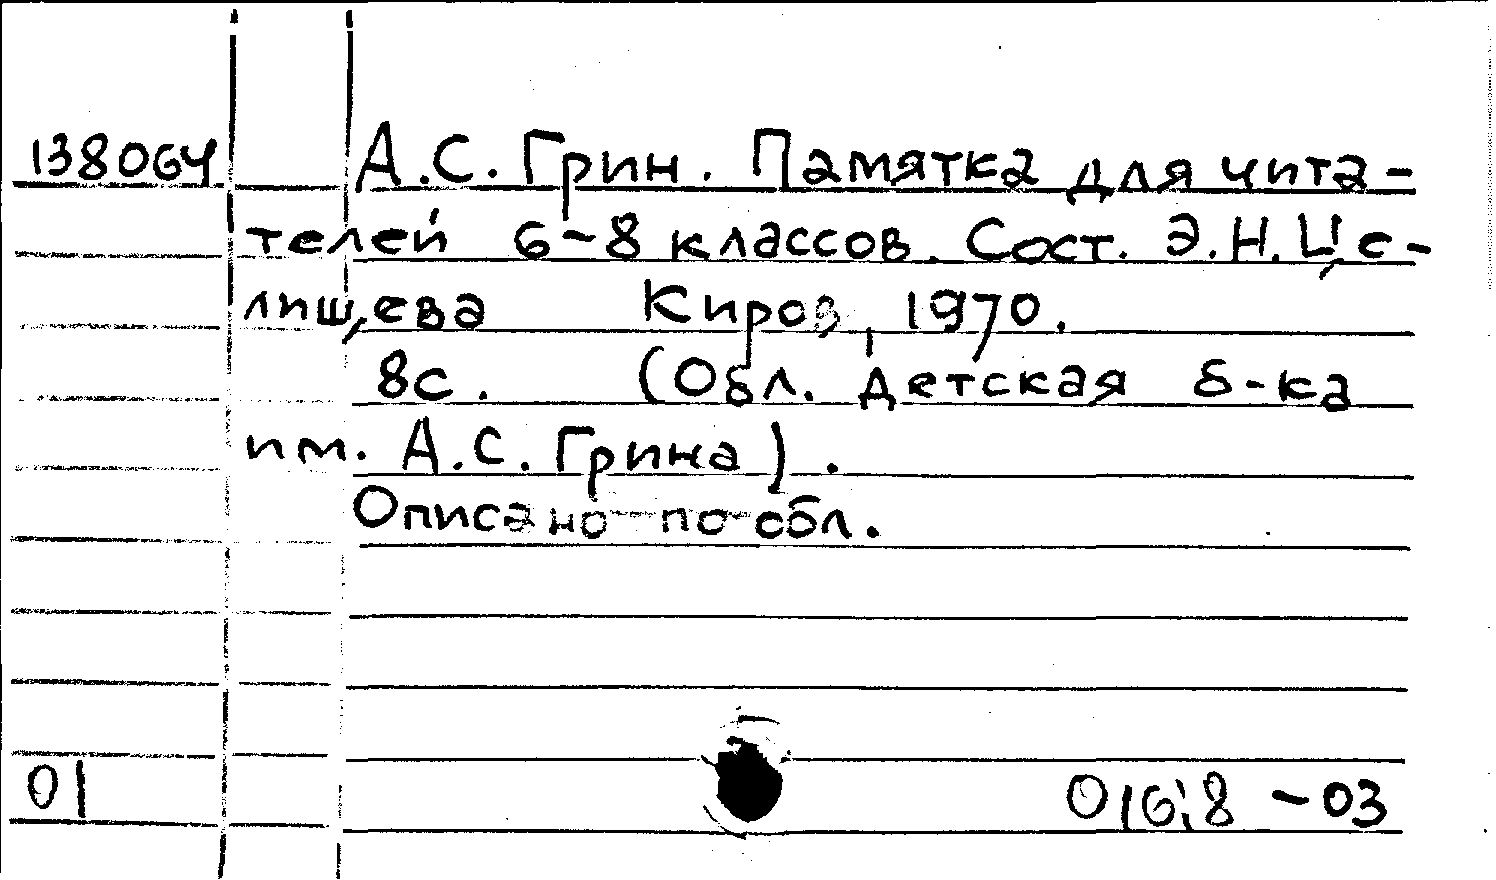 138064 А.С. Грин. Памятка для чита-
телей 6-8 классов. Сост. Э.Н. Це-
лищева Киров, 1970.
8с. (Обл. детская б-ка
им. А.С. Грина).
Описано по обл.
01 016:8 - 03